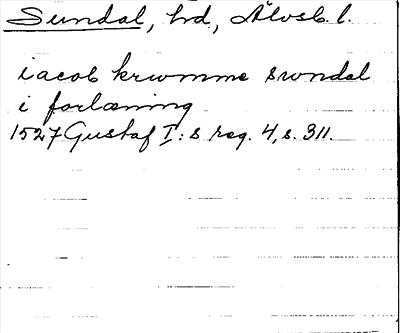 Sundal, hd, Älvsb. l.
iacob krwmme swndal
i forlæning
1527 Gustaf I:s reg. 4, s. 311.